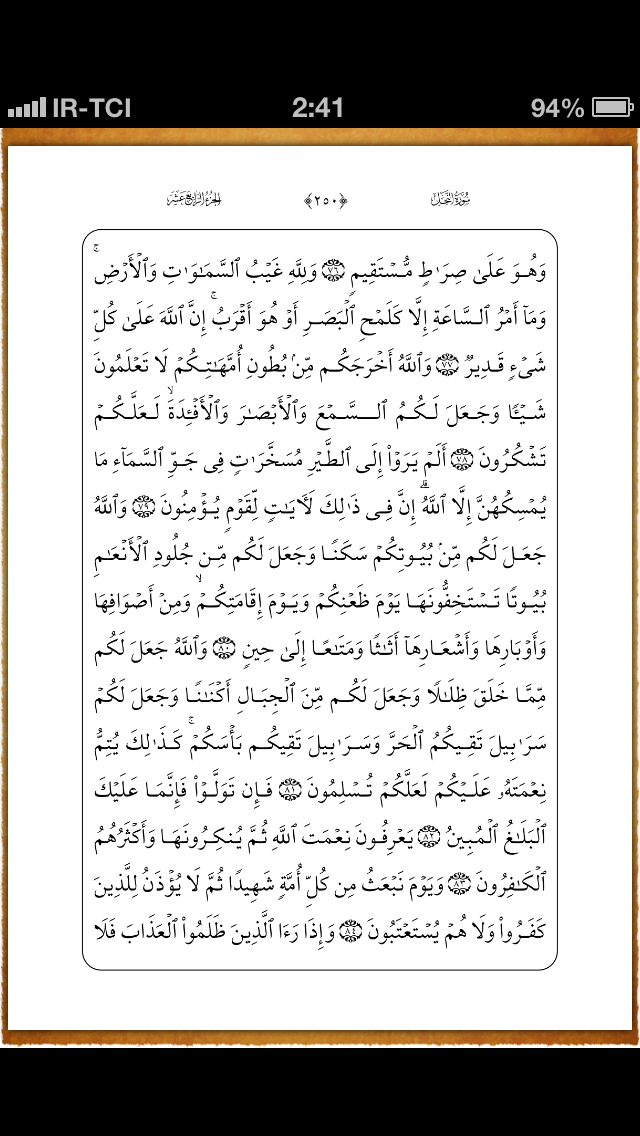 IR-TCI 2:41 94%
سُورَةُ النَّحۡلِ ﴿٢٥٠﴾ الجُزۡءُ الرَّابِعَ عَشَرَ
وَهُوَ عَلَىٰ صِرَٰطٖ مُّسۡتَقِيمٖ ٧٦ وَلِلَّهِ غَيۡبُ ٱلسَّمَٰوَٰتِ وَٱلۡأَرۡضِۚ
وَمَآ أَمۡرُ ٱلسَّاعَةِ إِلَّا كَلَمۡحِ ٱلۡبَصَرِ أَوۡ هُوَ أَقۡرَبُۚ إِنَّ ٱللَّهَ عَلَىٰ كُلِّ
شَيۡءٖ قَدِيرٞ ٧٧ وَٱللَّهُ أَخۡرَجَكُم مِّنۢ بُطُونِ أُمَّهَٰتِكُمۡ لَا تَعۡلَمُونَ
شَيۡـٔٗا وَجَعَلَ لَكُمُ ٱلسَّمۡعَ وَٱلۡأَبۡصَٰرَ وَٱلۡأَفۡـِٔدَةَۙ لَعَلَّكُمۡ
تَشۡكُرُونَ ٧٨ أَلَمۡ يَرَوۡاْ إِلَى ٱلطَّيۡرِ مُسَخَّرَٰتٖ فِي جَوِّ ٱلسَّمَآءِ مَا
يُمۡسِكُهُنَّ إِلَّا ٱللَّهُۗ إِنَّ فِي ذَٰلِكَ لَأٓيَٰتٖ لِّقَوۡمٖ يُؤۡمِنُونَ ٧٩ وَٱللَّهُ
جَعَلَ لَكُم مِّنۢ بُيُوتِكُمۡ سَكَنٗا وَجَعَلَ لَكُم مِّن جُلُودِ ٱلۡأَنۡعَٰمِ
بُيُوتٗا تَسۡتَخِفُّونَهَا يَوۡمَ ظَعۡنِكُمۡ وَيَوۡمَ إِقَامَتِكُمۡۙ وَمِنۡ أَصۡوَافِهَا
وَأَوۡبَارِهَا وَأَشۡعَارِهَآ أَثَٰثٗا وَمَتَٰعًا إِلَىٰ حِينٖ ٨٠ وَٱللَّهُ جَعَلَ لَكُم
مِّمَّا خَلَقَ ظِلَٰلٗا وَجَعَلَ لَكُم مِّنَ ٱلۡجِبَالِ أَكۡنَٰنٗا وَجَعَلَ لَكُمۡ
سَرَٰبِيلَ تَقِيكُمُ ٱلۡحَرَّ وَسَرَٰبِيلَ تَقِيكُم بَأۡسَكُمۡۚ كَذَٰلِكَ يُتِمُّ
نِعۡمَتَهُۥ عَلَيۡكُمۡ لَعَلَّكُمۡ تُسۡلِمُونَ ٨١ فَإِن تَوَلَّوۡاْ فَإِنَّمَا عَلَيۡكَ
ٱلۡبَلَٰغُ ٱلۡمُبِينُ ٨٢ يَعۡرِفُونَ نِعۡمَتَ ٱللَّهِ ثُمَّ يُنكِرُونَهَا وَأَكۡثَرُهُمُ
ٱلۡكَٰفِرُونَ ٨٣ وَيَوۡمَ نَبۡعَثُ مِن كُلِّ أُمَّةٖ شَهِيدٗا ثُمَّ لَا يُؤۡذَنُ لِلَّذِينَ
كَفَرُواْ وَلَا هُمۡ يُسۡتَعۡتَبُونَ ٨٤ وَإِذَا رَءَا ٱلَّذِينَ ظَلَمُواْ ٱلۡعَذَابَ فَلَا